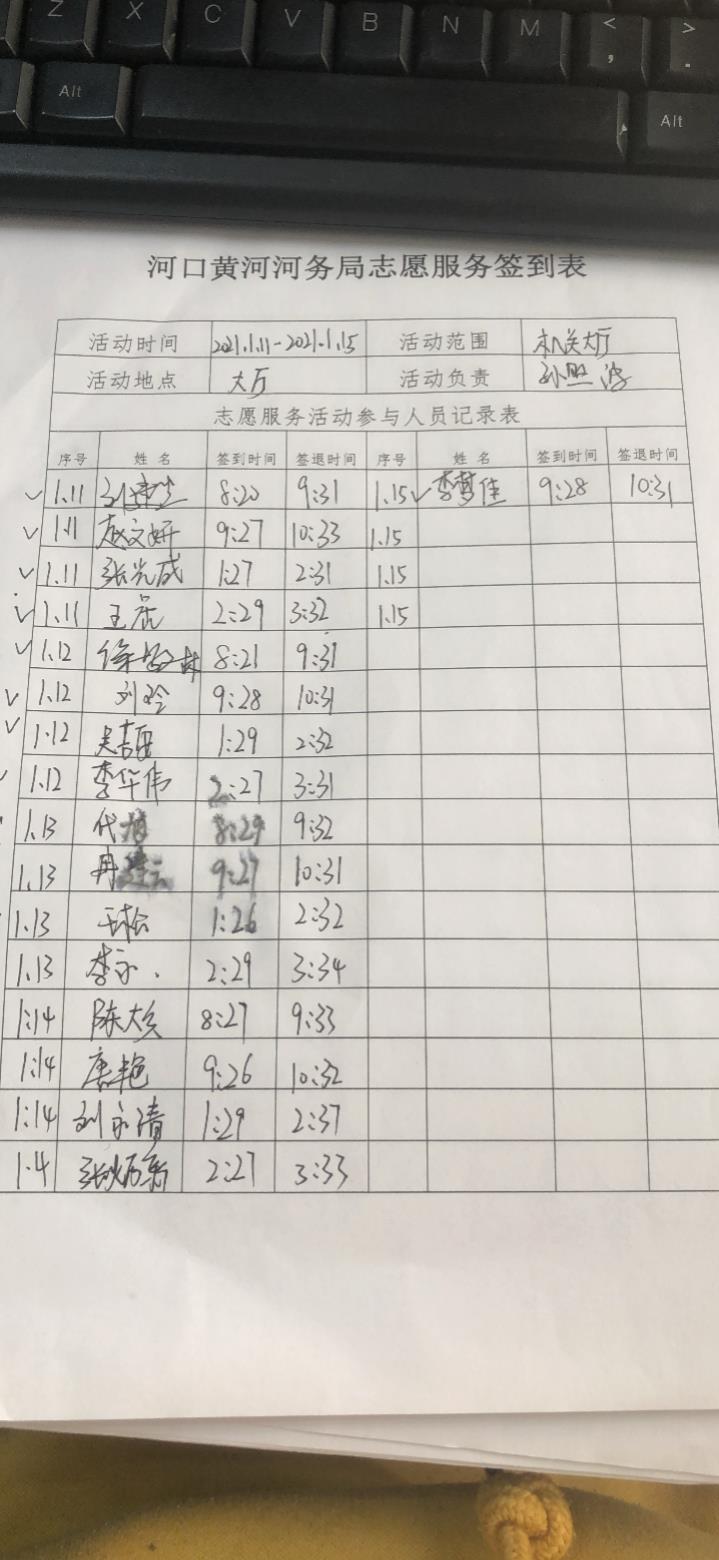 Z X C V B N M < ,
> .
Alt Alt
河口黄河河务局志愿服务签到表
活动时间 2021.1.11-2021.1.15 活动范围 机关大厅
活动地点 大厅 活动负责
志愿服务活动参与人员记录表
序号 姓名 签到时间 签退时间 序号 姓名 签到时间 签退时间
1.11 8:20 9:31 1.15 李梦佳 9:28 10:31
1.11 赵文妍 9:27 10:33 1.15
1.11 张光成 1:27 2:31 1.15
1.11 2:29 3:32 1.15
1.12 8:21 9:31
1.12 刘玲 9:28 10:31
1.12 1:29 2:32
1.12 李华伟 2:27 3:31
1.13 8:29 9:32
1.13 9:27 10:31
1.13 1:26 2:32
1.13 2:29 3:34
1:14 8:27 9:33
1:14 唐艳 9:26 10:32
1:14 刘永清 1:29 2:37
1.4 2:27 3:33